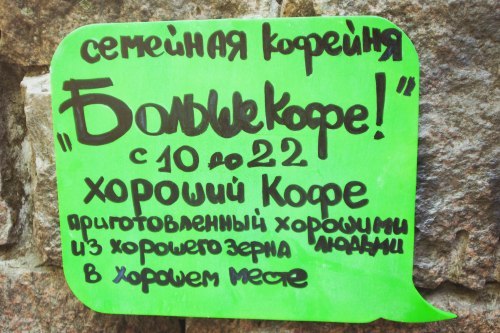 семейная кофейня
„БольшеКофе!"
с 10 до 22
хороший кофе
приготовленный хорошими
людьми
из хорошего зерна
в хорошем месте